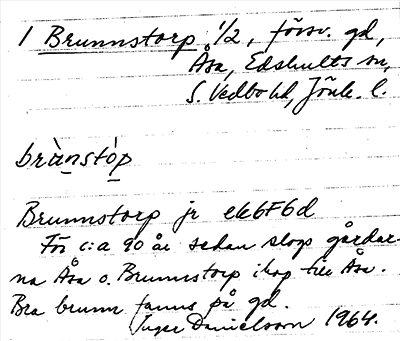 1 Brunnstorp 1/2, försv. gd,
Åsa, Edshults sn,
S. Vedbo hd, Jönk. l.
brùnstòp
Brunnstorp jr ek6F6d
För c:a 90 år sedan slogs gårdar-
na Åsa o. Brunnstorp ihop till Åsa.
Bra brunn fanns på gd.
Inger Danielsson 1964.